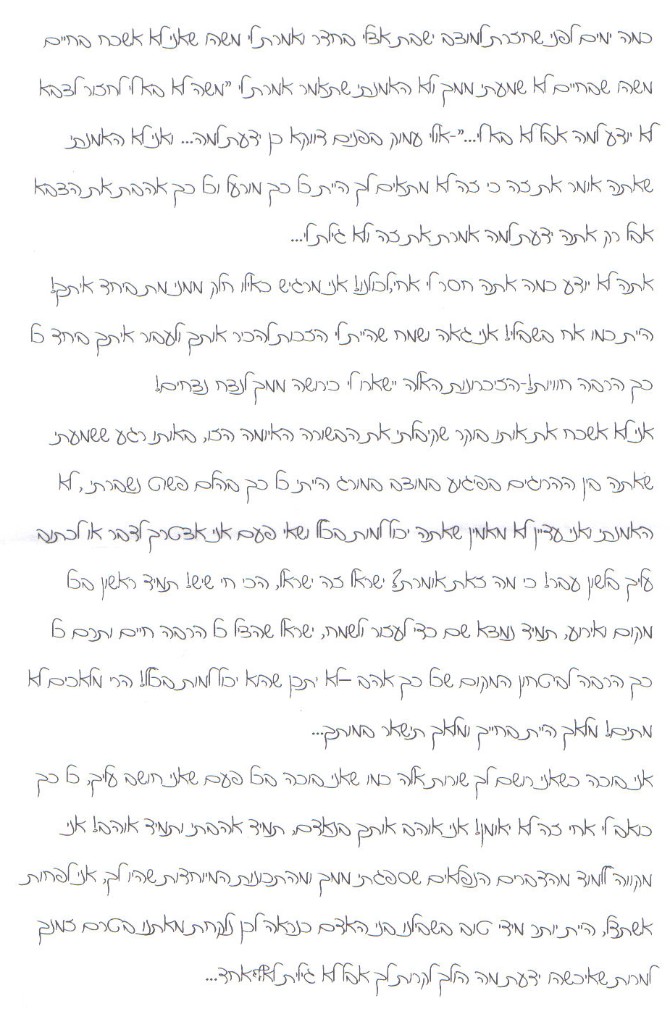 כמה ימים לפני שחזרת למוצב ישבת אצלי בחדר ואמרת לי משהו שאני לא אשכח בחיים
משהו שבחיים לא שמעתי ממך ולא האמנתי שתאמר אמרת לי "משה לא בא לי לחזור לצבא
לא יודע למה אבל לא בא לי..."-אולי עמוק בפנים דווקא כן ידעת למה... ואני לא האמנתי
שאתה אומר את זה כי זה לא מתאים לך היית כל כך מורעל וכל כך אהבת את הצבא
אבל רק אתה ידעת למה אמרת את זה ולא גילת לי...
אתה לא יודע כמה אתה חסר לי אחי,לכולנו! אני מרגיש כאילו חלק ממני מת ביחד איתך!
היית כמו אח בשבילי! אני גאה ושמח שהייתה לי הזכות להכיר אותך ולעבור איתך ביחד כל
כך הרבה חוויות!-הזיכרונות האלה יישארו לי כירושה ממך לנצח נצחים!
אני לא אשכח את אותו בוקר שקיבלתי את הבשורה האיומה הזו, באותו רגע ששמעתי
שאתה בין ההרוגים בפיגוע במוצב במורג הייתי כל כך בהלם פשוט נשברתי, לא
האמנתי ואני עדיין לא מאמין שאתה יכול למות בכלל ושאי פעם אני אצטרך לדבר או לכתוב
עליך בלשון עבר! כי מה זאת אומרת? ישראל זה ישראל, הכי חי שיש! תמיד ראשון בכל
מקום ואירוע, תמיד נמצא שם כדי לעזור ולשמח, ישראל שהציל כל הרבה חיים ותרם כל
כך הרבה לביטחון המקום שכל כך אהב –לא יתכן שהוא יכול למות בכלל! הרי מלאכים לא
מתים! מלאך היית בחייך ומלאך תישאר במותך...
אני בוכה כשאני רושם לך שורות אלה כמו שאני בוכה בכל פעם שאני חושב עליך, כל כך
כואב לי אחי זה לא יאומן! אני אוהב אותך בנאדם, תמיד אהבתי ותמיד אוהב! אני
מקווה ללמוד מהדברים הנפלאים שספגתי ממך ומהתכונות המיוחדות שהיו לך, אני לפחות
אשתדל, היית יותר מידי טוב בשבילנו בני האדם כנראה לכן נלקחת מאתנו בטרם זמנך
למרות שאיכשהו ידעת מה הולך לקרות לך אבל לא גילית לאף אחד...